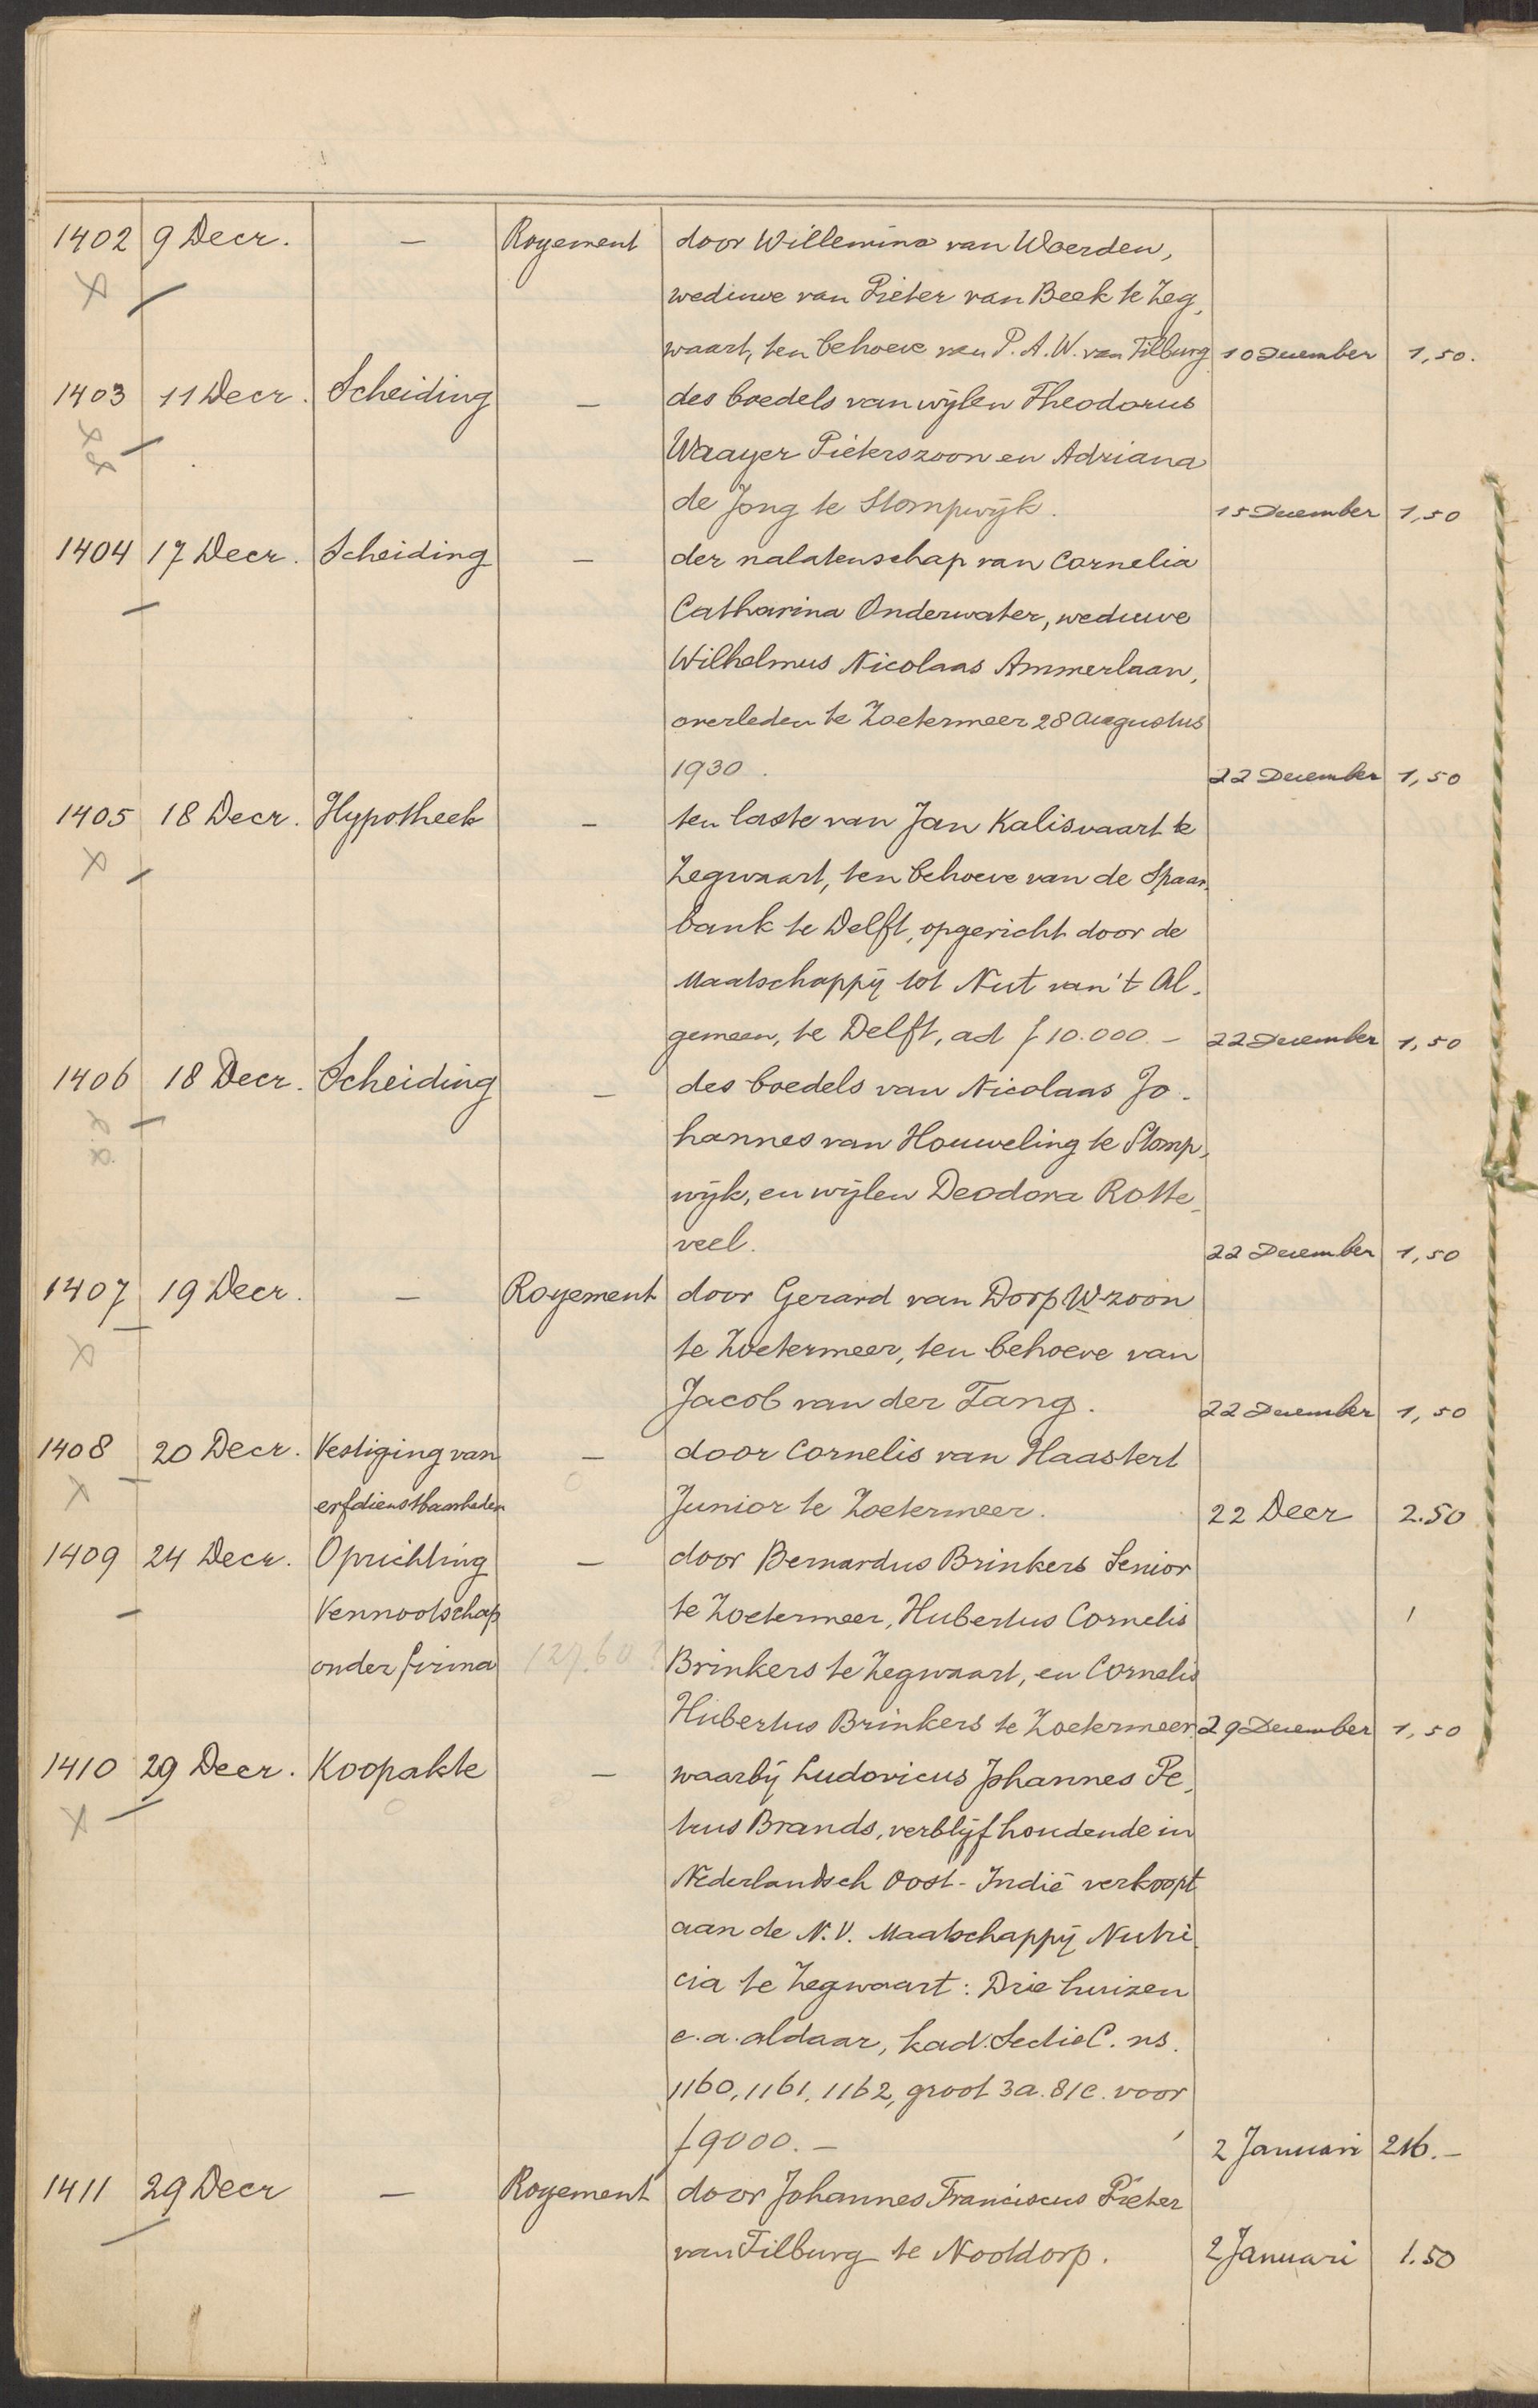 1402 9 Decr. — Royement door Willemina van Woerden,
weduwe van Pieter van Beek te Zeg-
waart, ten behoeve van P. A. W. van Tilburg 10 December 1,50.
1403 11 Decr. Scheiding — des boedels van wijlen Theodorus
Waayer Pieterszoon en Adriana
de Jong te Stompwijk. 15 December 1,50
1404 17 Decr. Scheiding — der nalatenschap van Cornelia
Catharina Onderwater, weduwe
Wilhelmus Nicolaas Ammerlaan,
overleden te Zoetermeer 28 Augustus
1930. 22 December 1,50
1405 18 Decr. Hypotheek — ten laste van Jan Kalisvaart te
Zegwaart, ten behoeve van de Spaar-
bank te Delft, opgericht door de
Maatschappij tot Nut van 't Al-
gemeen, te Delft, ad f 10.000.— 22 December 1,50
1406 18 Decr. Scheiding — des boedels van Nicolaas Jo-
hannes van Houweling te Stomp-
wijk, en wijlen Deodora Rotte-
veel. 22 December 1,50
1407 19 Decr. — Royement door Gerard van Dorp Wzoon
te Zoetermeer, ten behoeve van
Jacob van der Tang. 22 December 1,50
1408 20 Decr. Vestiging van — door Cornelis van Haastert
erfdienstbaarheden Junior te Zoetermeer. 22 Decr 2.50
1409 24 Decr. Oprichting — door Bernardus Brinkers Senior
Vennootschap te Zoetermeer, Hubertus Cornelis
onder firma 127.60? Brinkers te Zegwaart, en Cornelis
Hubertus Brinkers te Zoetermeer. 29 December 1,50
1410 29 Decr. Koopakte — waarbij Ludovicus Johannes Pe-
trus Brands, verblijfhoudende in
Nederlandsch Oost-Indië verkoopt
aan de N.V. Maatschappij Nutri-
cia te Zegwaart: Drie huizen
e.a. aldaar, kad. Sectie C. ns.
1160, 1161, 1162, groot 3a. 81c. voor
f 9000.— 2 Januari 216.—
1411 29 Decr — Royement door Johannes Franciscus Pieter
van Tilburg te Nootdorp. 2 Januari 1.50